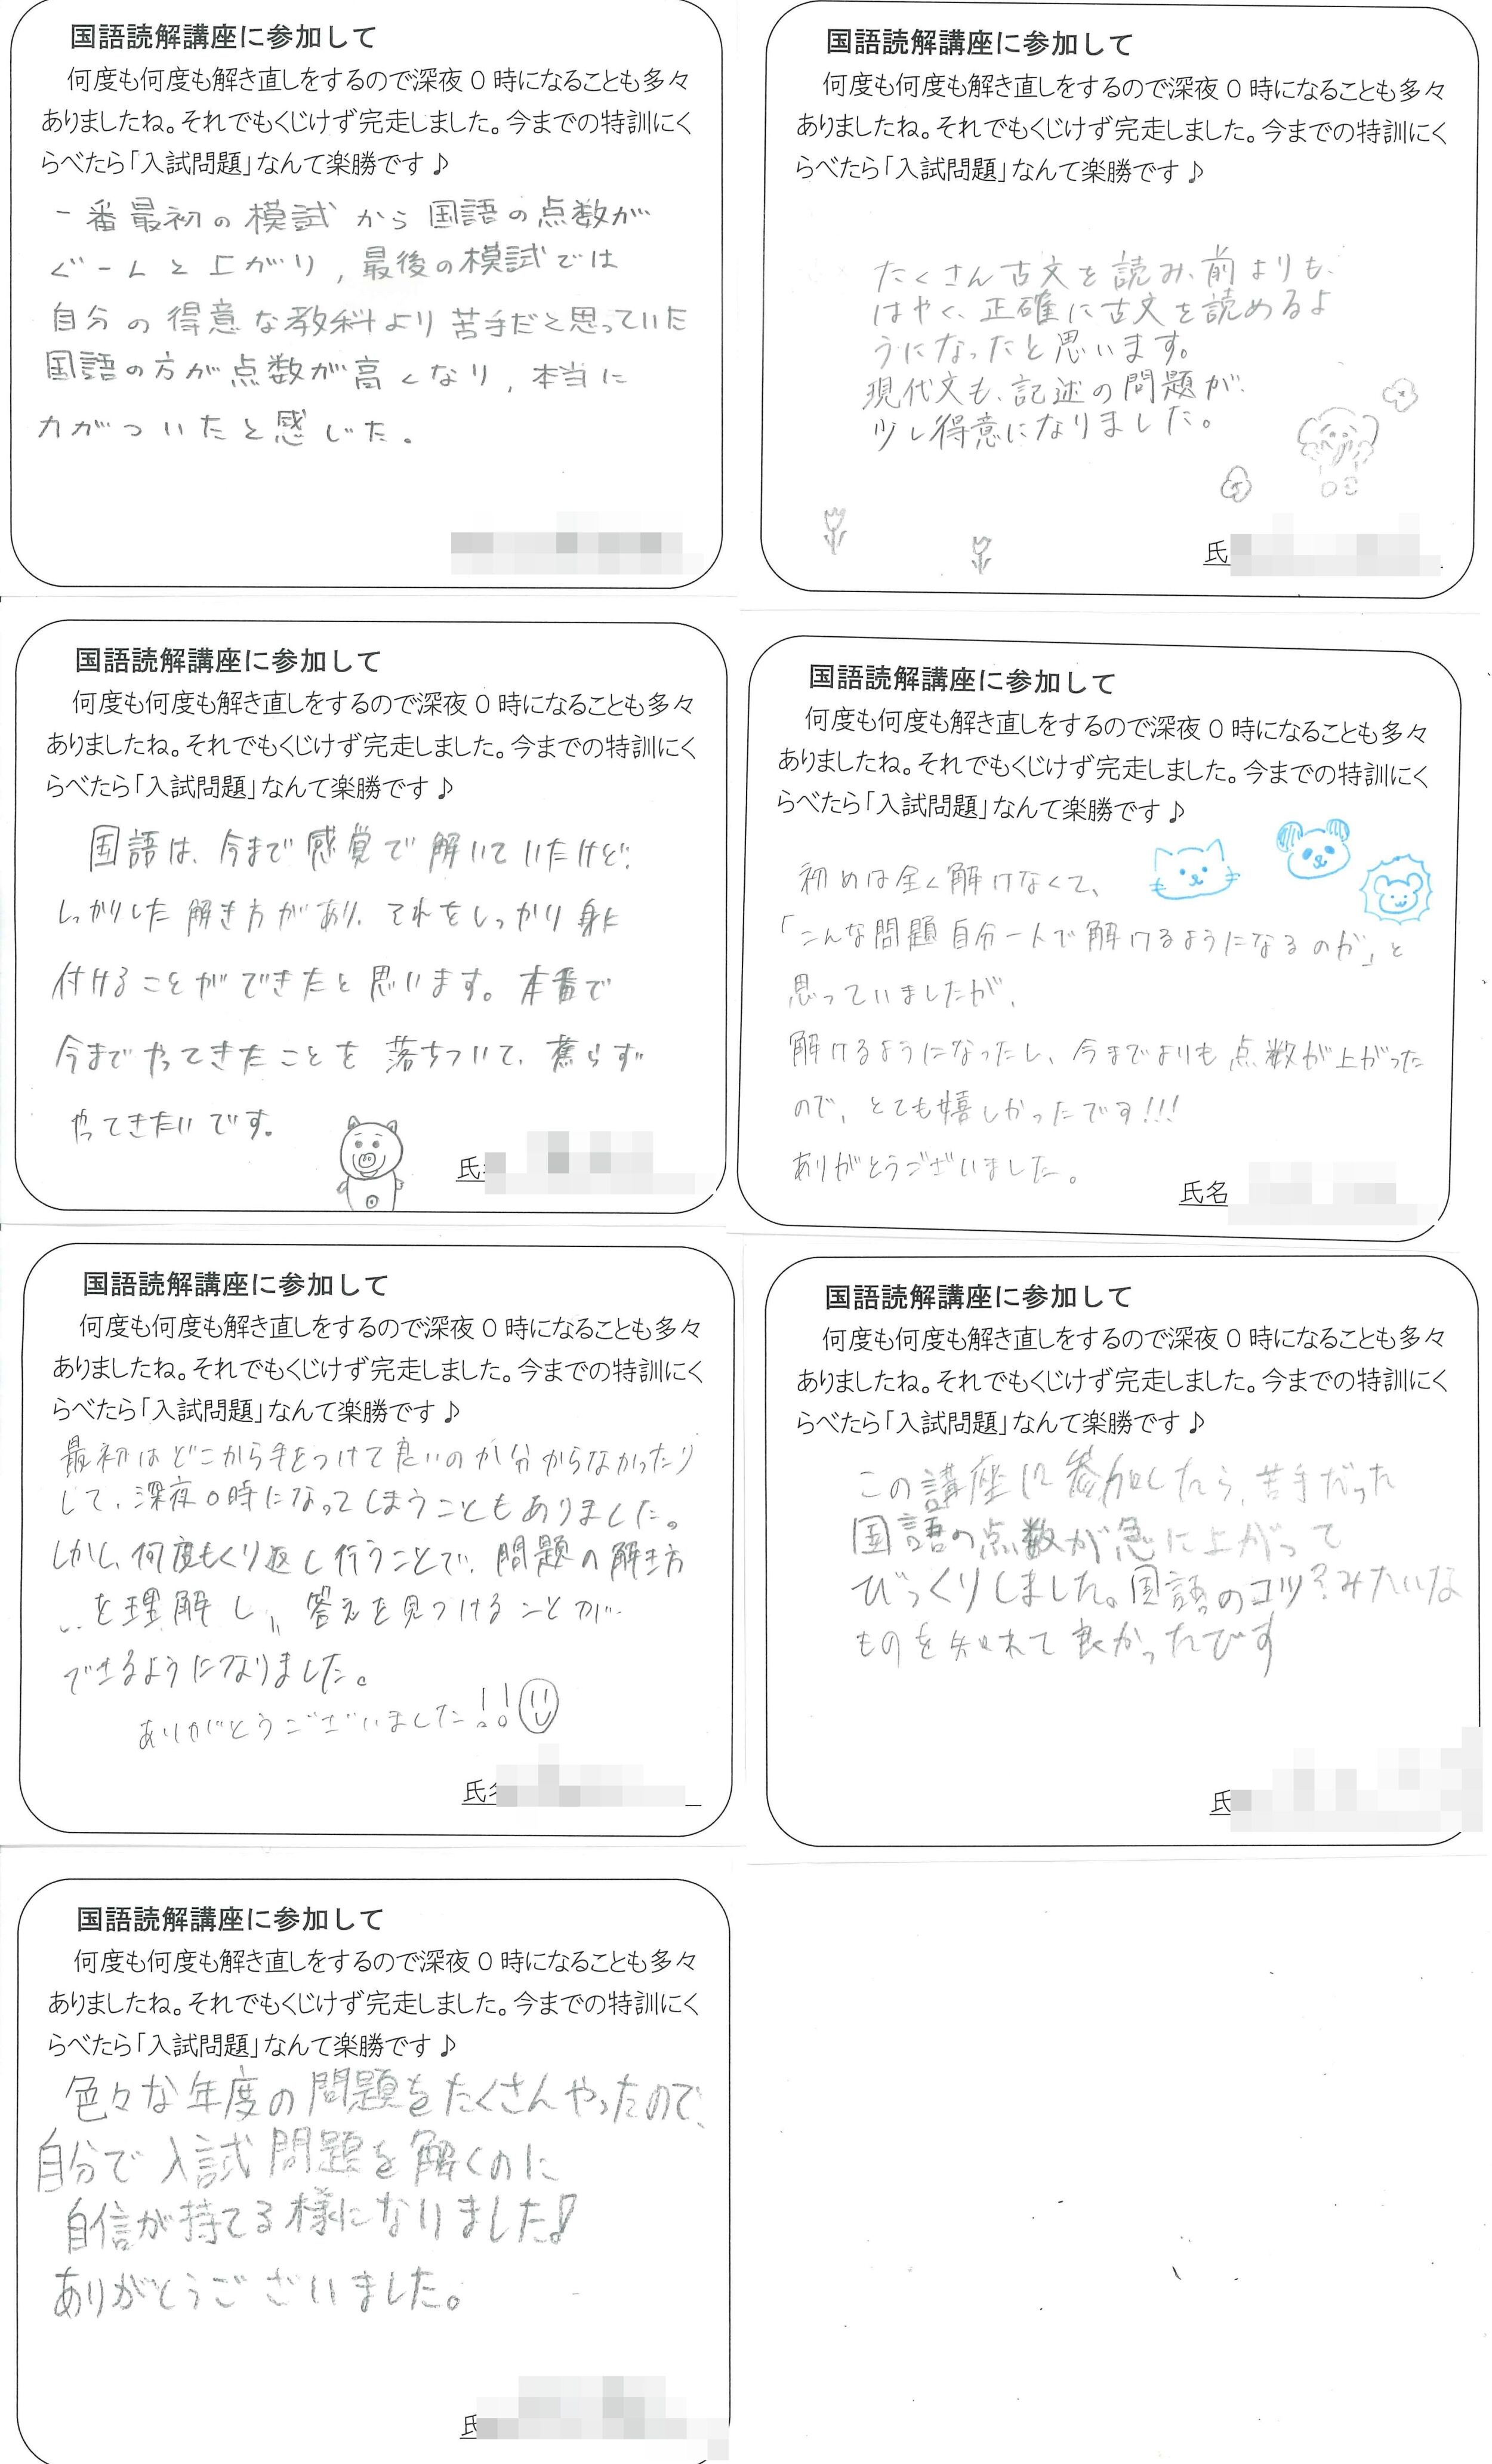 国語読解講座に参加して
何度も何度も解き直しをするので深夜0時になることも多々
ありましたね。それでもくじけず完走しました。今までの特訓にく
らべたら「入試問題」なんて楽勝です♪
一番最初の模試から国語の点数が
ぐーんと上がり,最後の模試では
自分の得意な教科より苦手だと思っていた
国語の方が点数が高くなり,本当に
力がついたと感じた。
国語読解講座に参加して
何度も何度も解き直しをするので深夜0時になることも多々
ありましたね。それでもくじけず完走しました。今までの特訓にく
らべたら「入試問題」なんて楽勝です♪
たくさん古文を読み、前よりも、
はやく、正確に古文を読めるよ
うになったと思います。
現代文も、記述の問題が、
少し得意になりました。
氏
国語読解講座に参加して
何度も何度も解き直しをするので深夜0時になることも多々
ありましたね。それでもくじけず完走しました。今までの特訓にく
らべたら「入試問題」なんて楽勝です♪
国語は、今まで感覚で解いていたけど、
しっかりした解き方があり、それをしっかり身に
付けることができたと思います。本番で
今までやってきたことを落ちついて、焦らず
やってきたいです。
氏
国語読解講座に参加して
何度も何度も解き直しをするので深夜0時になることも多々
ありましたね。それでもくじけず完走しました。今までの特訓にく
らべたら「入試問題」なんて楽勝です♪
初めは全く解けなくて、
「こんな問題自分一人で解けるようになるのか」と
思っていましたが、
解けるようになったし、今までよりも点数が上がった
ので、とても嬉しかったです!!!
ありがとうございました。
氏名
国語読解講座に参加して
何度も何度も解き直しをするので深夜0時になることも多々
ありましたね。それでもくじけず完走しました。今までの特訓にく
らべたら「入試問題」なんて楽勝です♪
最初はどこから手をつけて良いのか分からなかったり
して、深夜0時になってしまうこともありました。
しかし、何度もくり返し行うことで、問題の解き方
を理解し、答えを見つけることが
できるようになりました。
ありがとうございました!!
氏名
国語読解講座に参加して
何度も何度も解き直しをするので深夜0時になることも多々
ありましたね。それでもくじけず完走しました。今までの特訓にく
らべたら「入試問題」なんて楽勝です♪
この講座に参加したら、苦手だった
国語の点数が急に上がって
びっくりしました。国語のコツ?みたいな
ものを知れて良かったです
氏
国語読解講座に参加して
何度も何度も解き直しをするので深夜0時になることも多々
ありましたね。それでもくじけず完走しました。今までの特訓にく
らべたら「入試問題」なんて楽勝です♪
色々な年度の問題をたくさんやったので、
自分で入試問題を解くのに
自信が持てる様になりました!
ありがとうございました。
氏